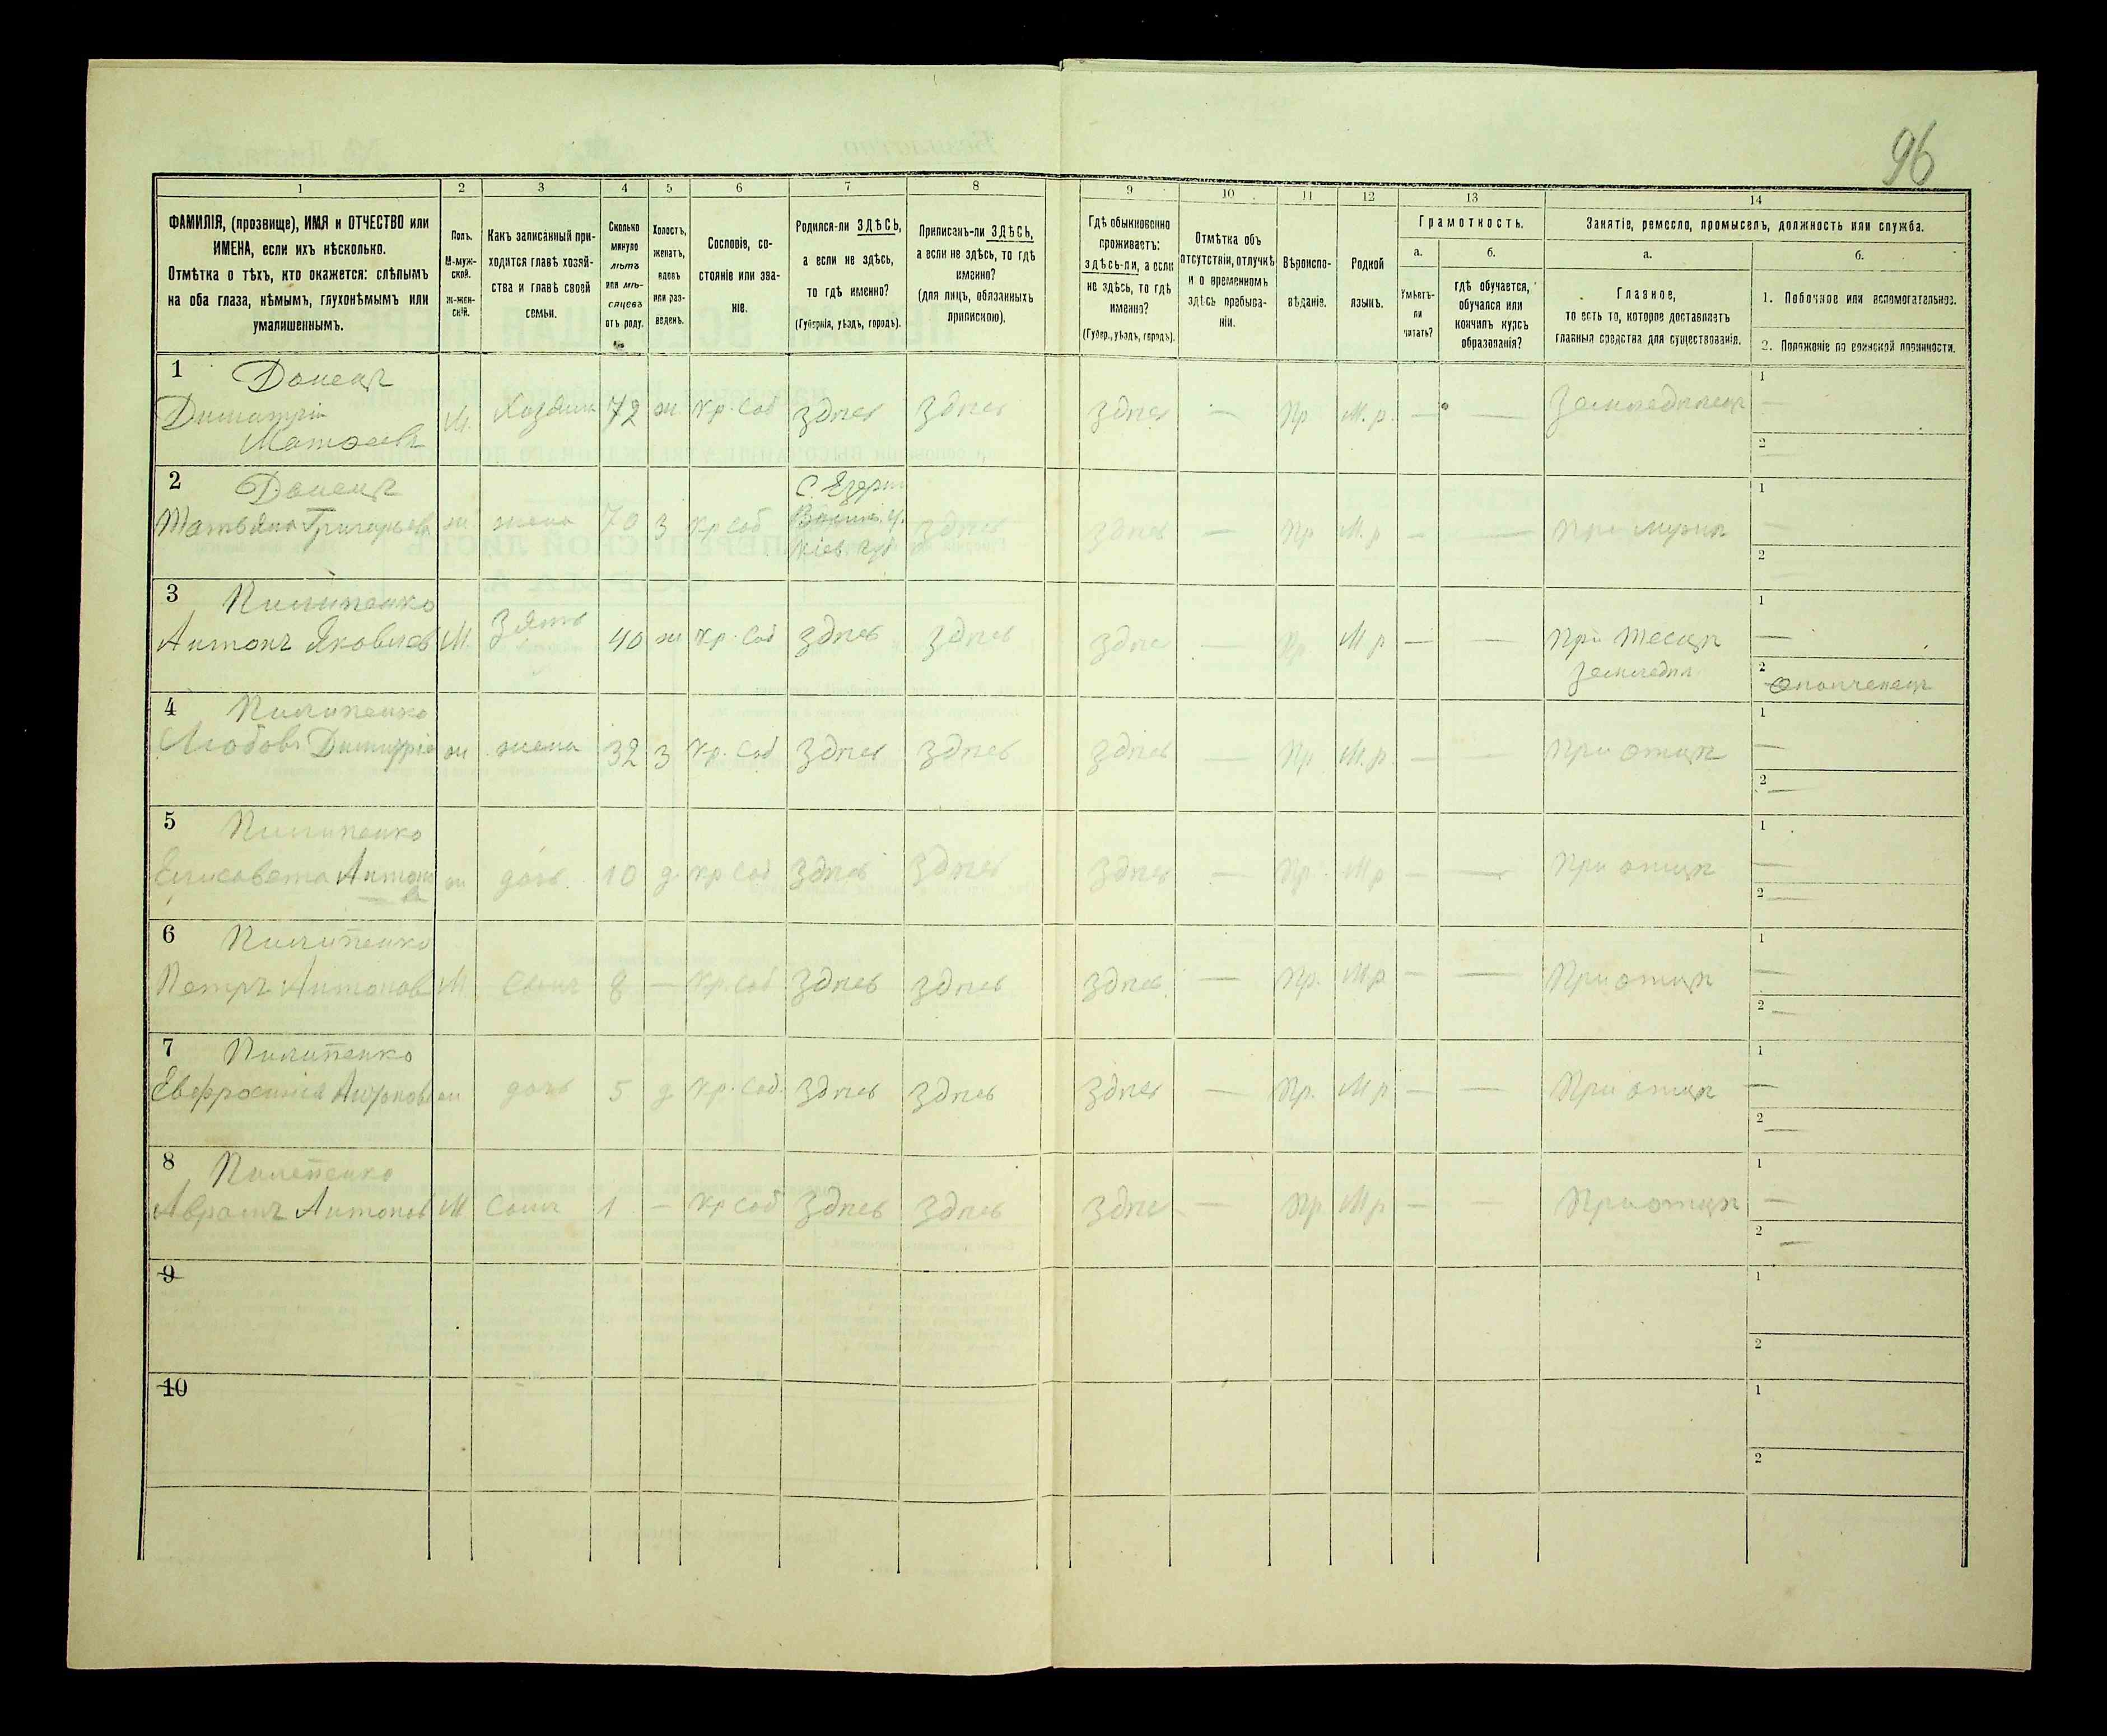 96
1 2 3 4 5 6 7 8 9 10 11 12 13 14
ФАМИЛІЯ, (прозвище), ИМЯ и ОТЧЕСТВО или
ИМЕНА, если ихъ нѣсколько.
Отмѣтка о тѣхъ, кто окажется: слѣпымъ
на оба глаза, нѣмымъ, глухонѣмымъ или
умалишеннымъ.
Полъ.
М-муж-
ской.
Ж-жен-
скій.
Какъ записанный при-
ходится главѣ хозяй-
ства и главѣ своей
семьи.
Сколько
минуло
лѣтъ
или мѣ-
сяцевъ
отъ роду.
Холостъ,
женатъ,
вдовъ
или раз-
веденъ.
Сословіе, со-
стояніе или зва-
ніе.
Родился-ли ЗДѢСЬ,
а если не здѣсь,
то гдѣ именно?
(Губернія, уѣздъ, городъ).
Приписанъ-ли ЗДѢСЬ,
а если не здѣсь, то гдѣ
именно?
(для лицъ, обязанныхъ
припискою).
Гдѣ обыкновенно
проживаетъ:
здѣсь-ли, а если
не здѣсь, то гдѣ
именно?
(Губер., уѣздъ, городъ).
Отмѣтка объ
отсутствіи, отлучкѣ
и о временномъ
здѣсь пребыва-
ніи.
Вѣроиспо-
вѣданіе.
Родной
языкъ.
Грамотность.
а.
Умѣетъ-
ли
читать?
б.
гдѣ обучается,
обучался или
кончилъ курсъ
образованія?
Занятіе, ремесло, промыселъ, должность или служба.
а.
Главное,
то есть то, которое доставляетъ
главныя средства для существованія.
б.
1. Побочное или вспомогательное.
2. Положеніе по воинской повинности.
1 Донецъ
Димитрій
Матѳеевъ
М. Хозяин 72 ж Кр. Соб здѣсь здѣсь здѣсь — Пр М. р. — — Земледѣлецъ
1 —
2 —
2 Донецъ
Татьяна Григорьева ж. жена 70 з Кр Соб
Кіев губ
здѣсь здѣсь — Пр М. р — — При мужѣ
1 —
2 —
3 Пилипенко
Антонъ Яковлев М. Зять 40 ж Кр. Соб здѣсь здѣсь здѣс — Пр. М р — — При Тесцѣ
земледѣл
1 —
2 Ополченецъ
4 Пилипенко
Любовь Димитріе ж жена 32 з Кр. Соб здѣсь здѣсь здѣсь — Пр М. р. — — При отцѣ
1 —
2 —
5 Пилипенко
Елисавета Антоно
ва
ж дочь 10 д Кр Соб здѣсь здѣсь здѣсь — Пр. М р — — При отцѣ
1 —
2 —
6 Пилипенко
Петръ Антонов М. Сынъ 8 — Кр. Соб здѣсь здѣсь здѣсь — Пр. М р. — — При отцѣ
1 —
2 —
7 Пилипенко
Евфросинія Антонов ж дочь 5 д Кр. Соб. здѣсь здѣсь здѣсь — Пр. М р — — При отцѣ
1 —
2 —
8 Пилепенко
Аврамъ Антонов М Сынъ 1 — Кр Соб здѣсь здѣсь здѣс — Пр М р — — При отцѣ
1 —
2 —
9
1
2
10
1
2